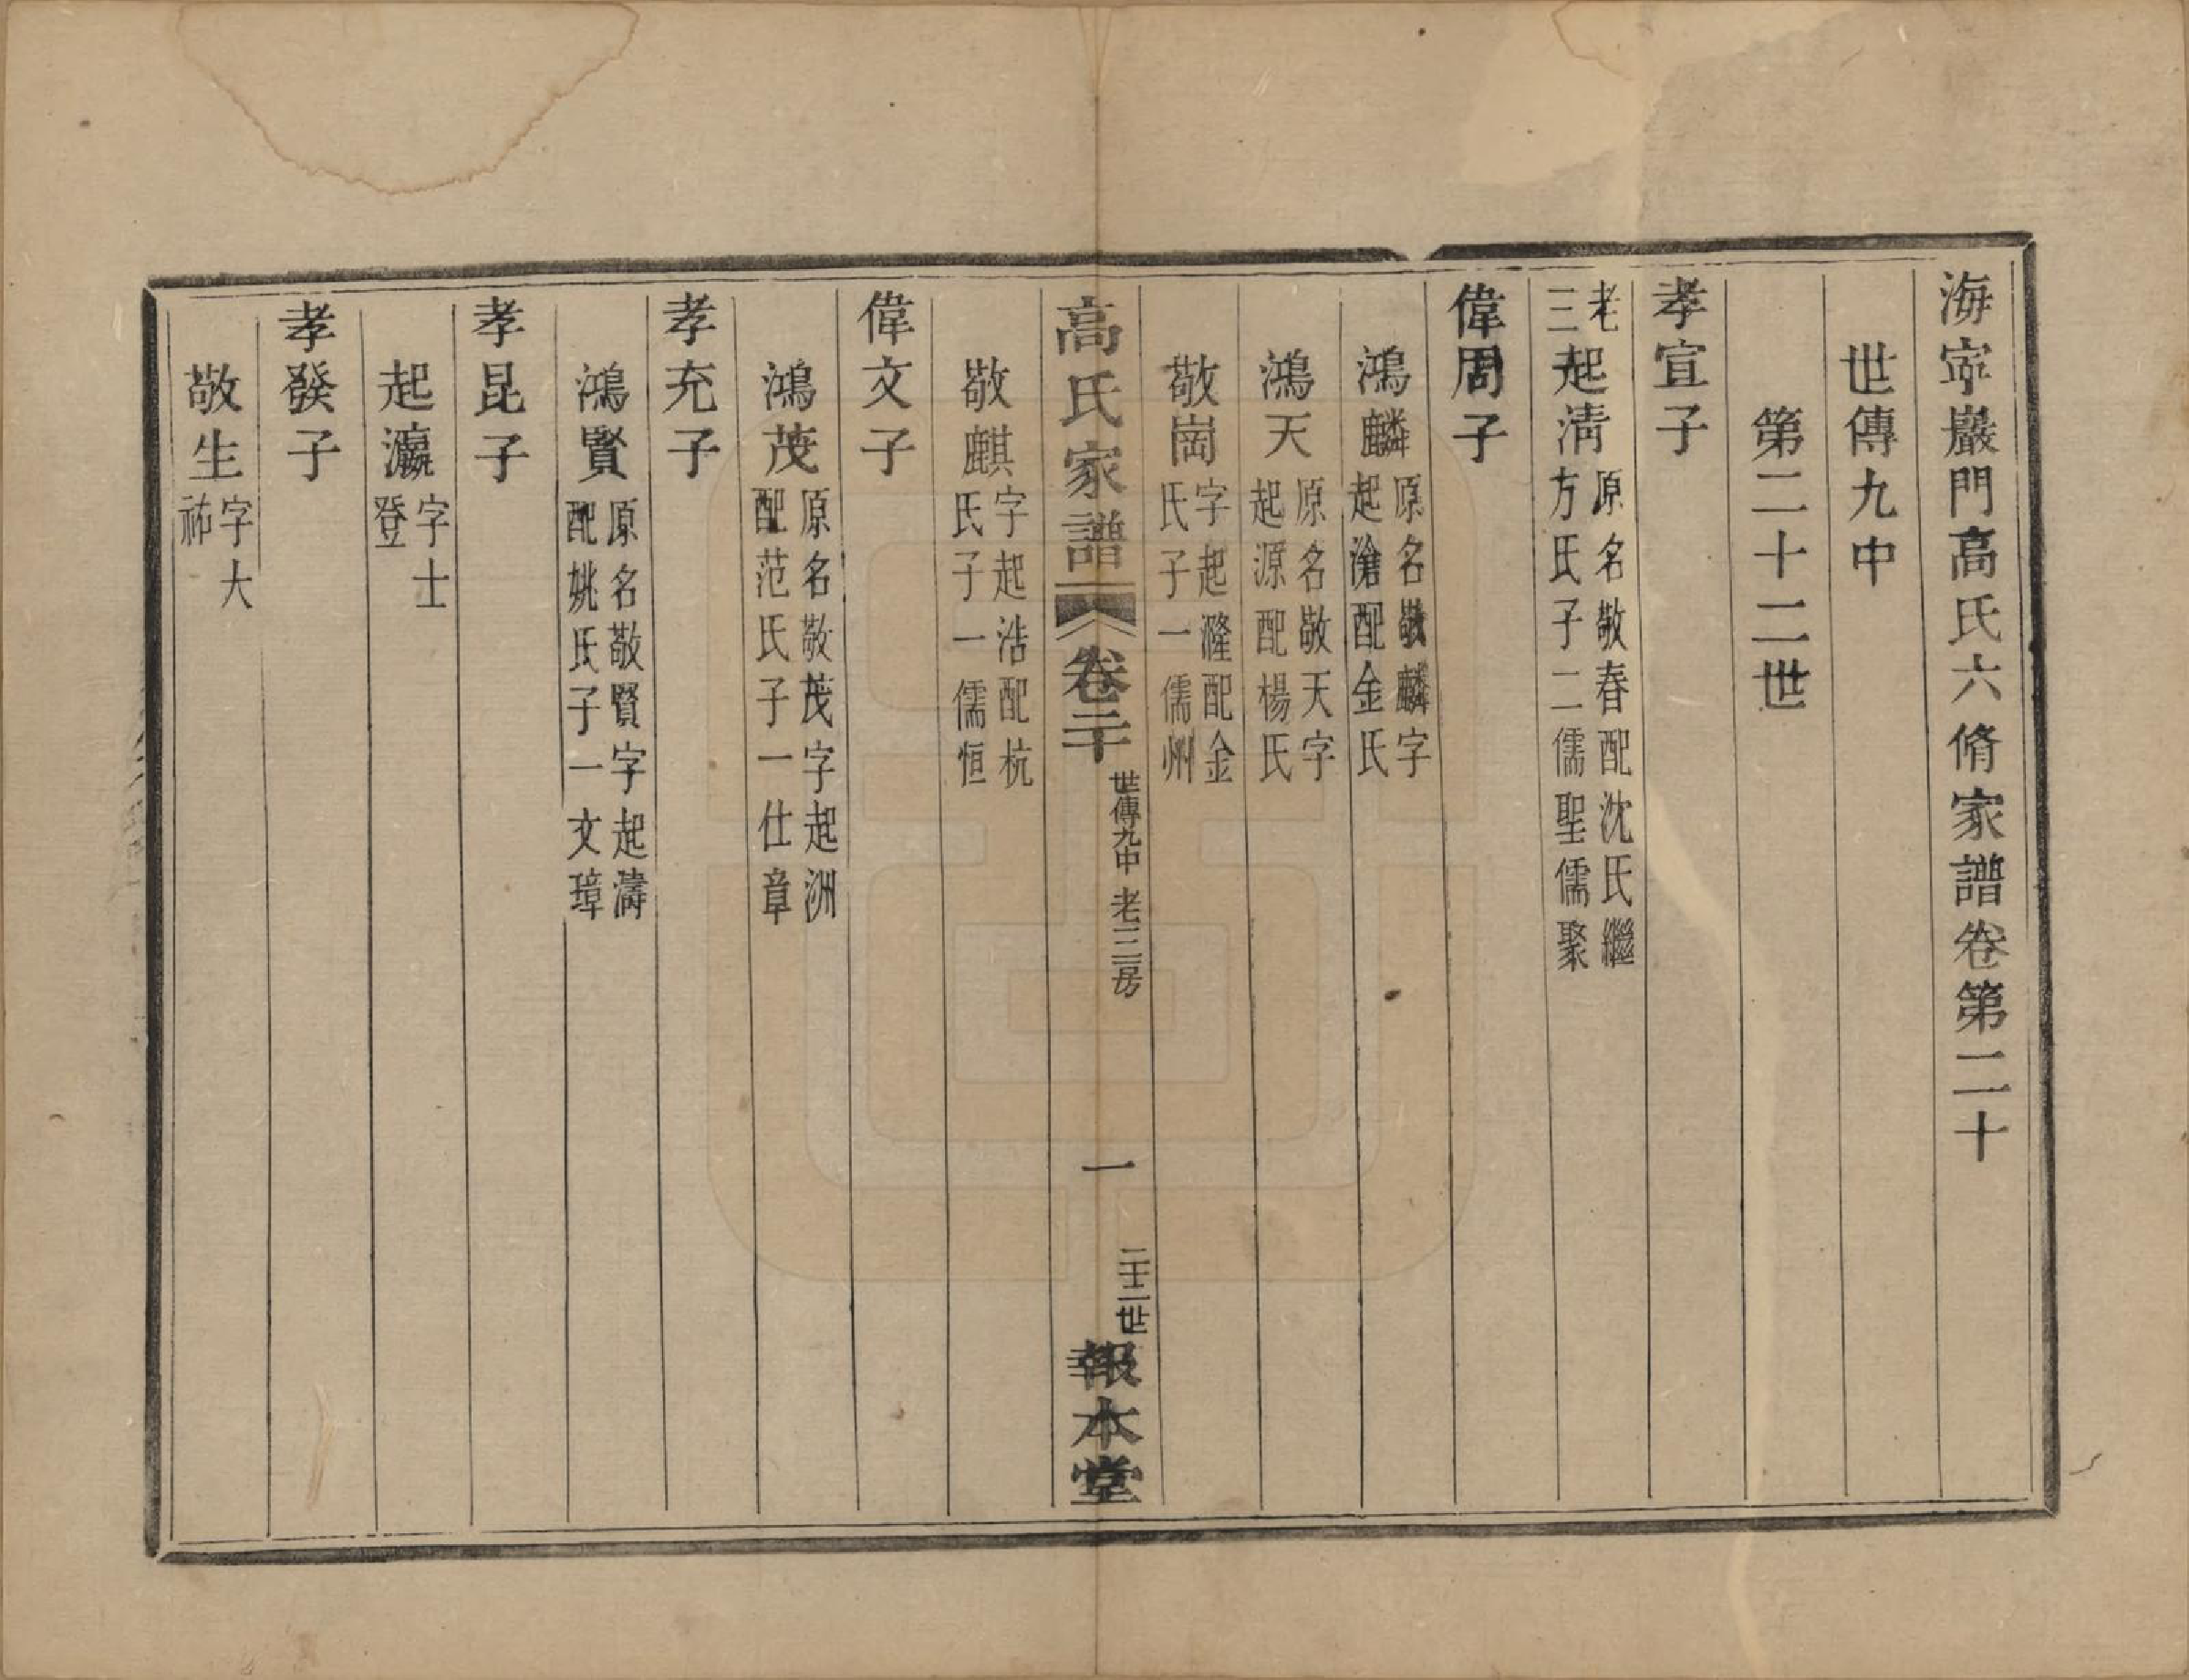 海寍巖門高氏六脩家譜卷第二十
世傳九中
第二十二世
孝宣子
老三起淸原名敬春配沈氏繼方氏子二儒聖儒聚
偉周子
鴻麟原名敬麟字起滄配金氏
鴻天原名敬天字起源配楊氏
敬崗字起漋配金氏子一儒州
高氏家譜 卷二十 世傳九中 老三房 一 二十二世 報本堂
敬麒字起浩配杭氏子一儒恒
偉文子
鴻茂原名敬茂字起洲配范氏子一仕章
孝充子
鴻賢原名敬賢字起濤配姚氏子一文璋
孝昆子
起瀛字士登
孝發子
敬生字大祐